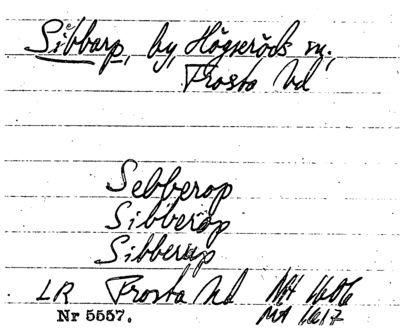 Sibbarp, by, Högseröds sn.,
Frosta hd
Sebberop
Sibberöp
Sibberup
LR Frosta hd MH 1606
Nr 5557. MA 1617